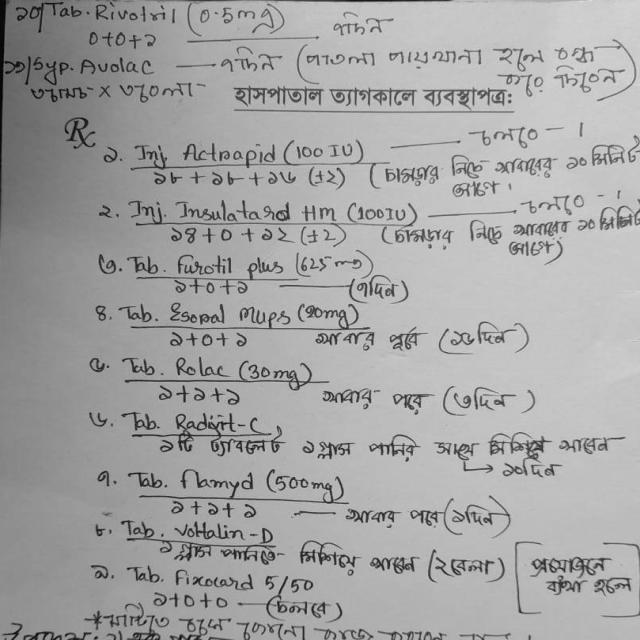 ১০) Tab. Rivotril (0.5mg) ৭দিন
০+০+১
১১) Syp. Avolac — ৭দিন (পাতলা পায়খানা হলে বন্ধ
করে দিবেন)
৩চামচ × ৩বেলা
হাসপাতাল ত্যাগকালে ব্যবস্থাপত্র:
Rx
১. Inj. Actrapid (100 IU) — চলবে - ।
১৮ + ১৮ + ১৬ (±2) (চামড়ার নিচে খাবারের ১০ মিনিট
আগে।
২. Inj. Insulatard HM (100IU) — চলবে - ।
১৪ + ০ + ১২ (±2) (চামড়ার নিচে খাবারের ১০ মিনিট
আগে)
৩. Tab. Furotil plus (625 mg)
১+০+১ — (৭দিন)
৪. Tab. Esopal Mups (20mg)
১+০+১ খাবার পূর্বে (১৬দিন)
৫. Tab. Rolac (30mg)
১+১+১ খাবার পরে (৩দিন)
৬. Tab. -C
১টি ট্যাবলেট ১ গ্লাস পানির সাথে মিশিয়ে খাবেন
→ ১০দিন
৭. Tab. Flamyd (500mg)
১+১+১ — খাবার পরে
৮. Tab. Voltalin-D
১ গ্লাস পানিতে মিশিয়ে খাবেন (২বেলা) [প্রয়োজনে
ব্যথা হলে]
৯. Tab. Fixocard 5/50
১+০+০ — (চলবে)